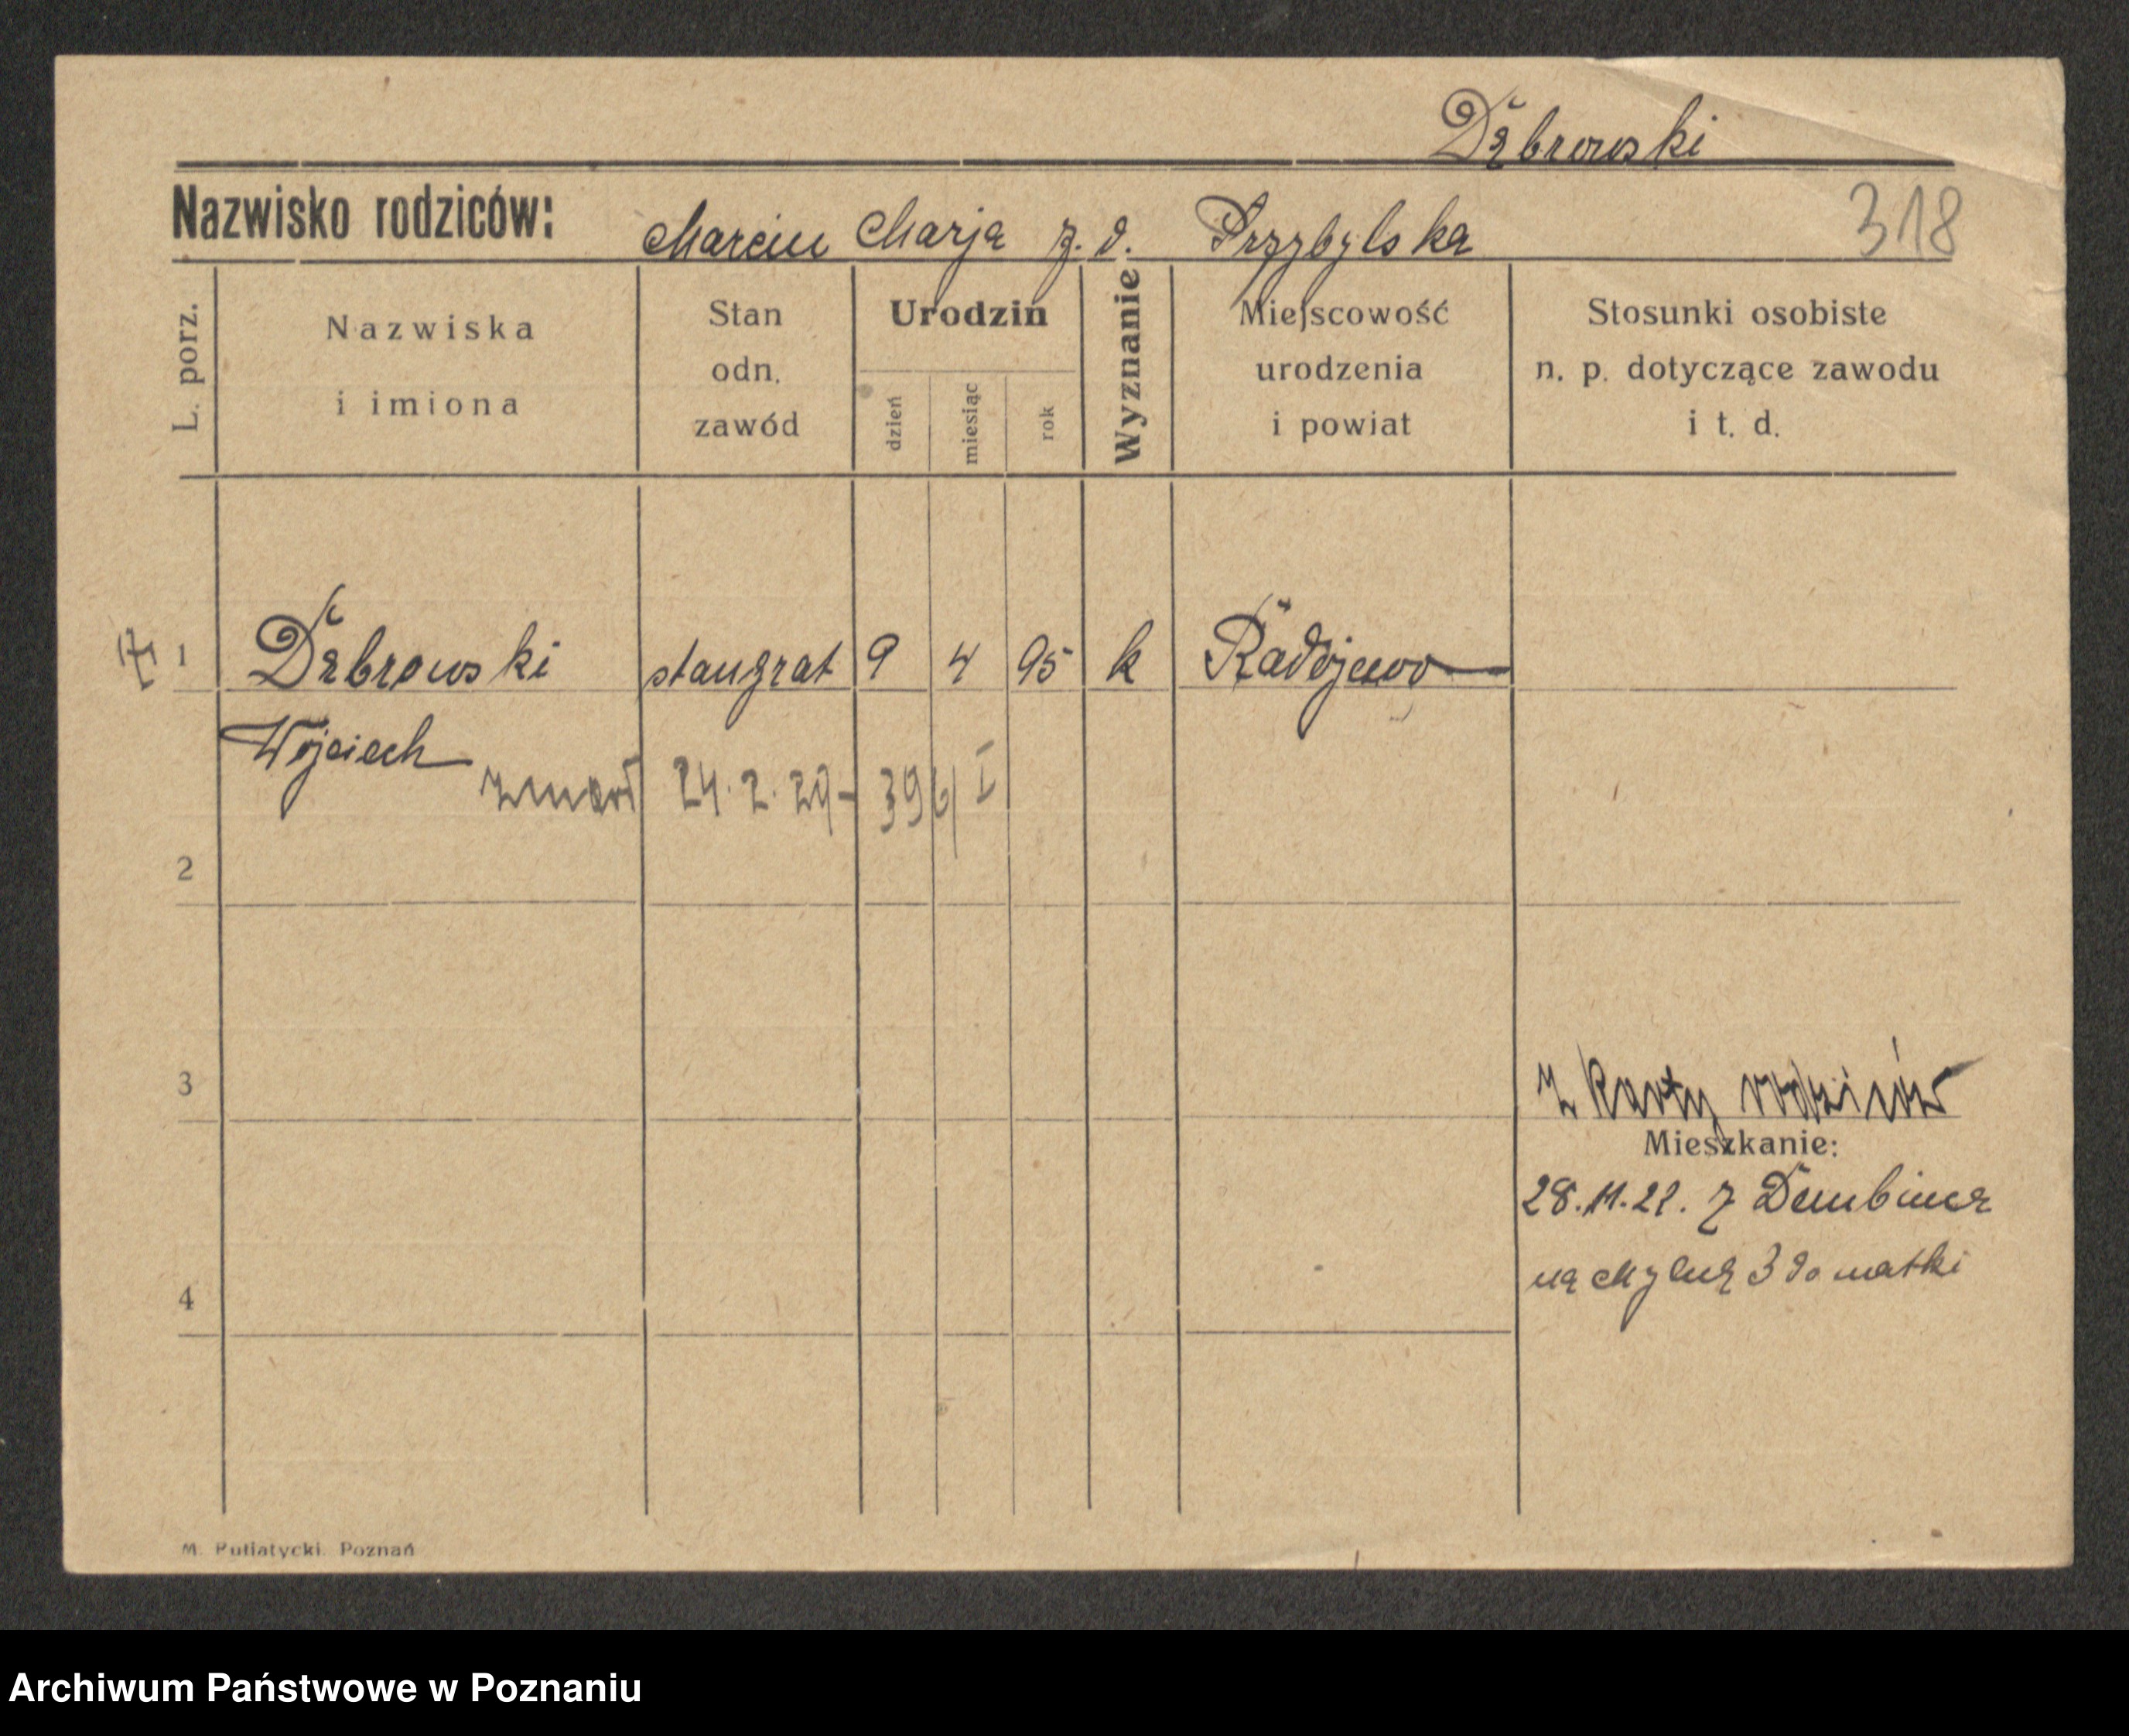 Dąbrowski
Nazwisko rodziców: Marcin Marja z. d. Przybylska 318
L. porz.
Nazwiska
i imiona
Stan
odn.
zawód
Urodzin
dzień
miesiąc
rok
Wyznanie
Miejscowość
urodzenia
i powiat
Stosunki osobiste
n. p. dotyczące zawodu
i t. d.
1 Dąbrowski stangrat 9 4 95 k Radojewo
Wojciech
zmarł 24. 2. 29 - 396/I
2
3
z karty rodziców
Mieszkanie:
28.11.22. z Dembina
na Mylną 3 do matki
4
M. Putiatycki. Poznań
Archiwum Państwowe w Poznaniu